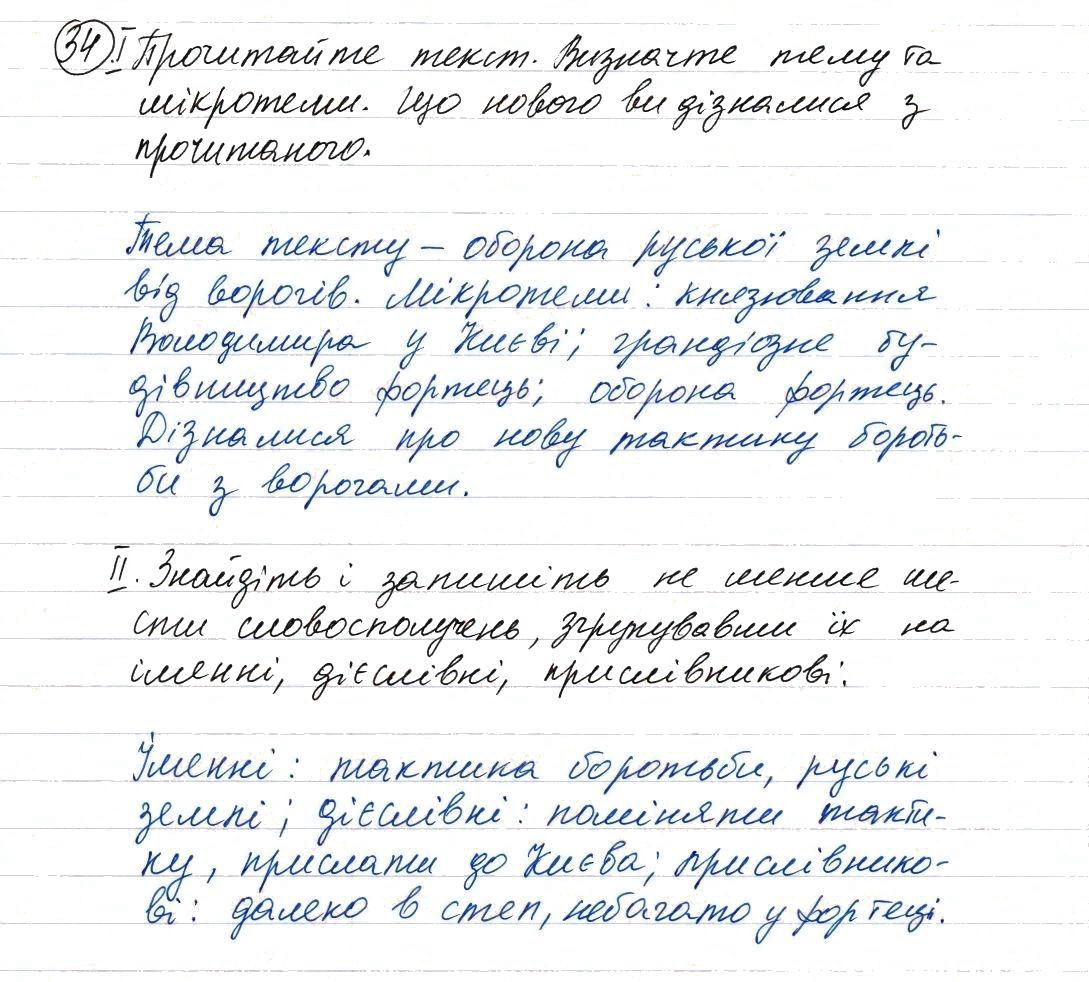 34. I Прочитайте текст. Визначте тему та
мікротеми. Що нового ви дізналися з
прочитаного.
Тема тексту – оборона руської землі
від ворогів. Мікротеми: князювання
Володимира у Києві; грандіозне бу-
дівництво фортець; оборона фортець.
Дізналися про нову тактику бороть-
би з ворогами.
II. Знайдіть і запишіть не менше ше-
сти словосполучень, згрупувавши їх на
іменні, дієслівні, прислівникові.
Іменні: тактика боротьби, руські
землі; дієслівні: поміняти такти-
ку, прислати до Києва; прислівнико-
ві: далеко в степ, небагато у фортеці.